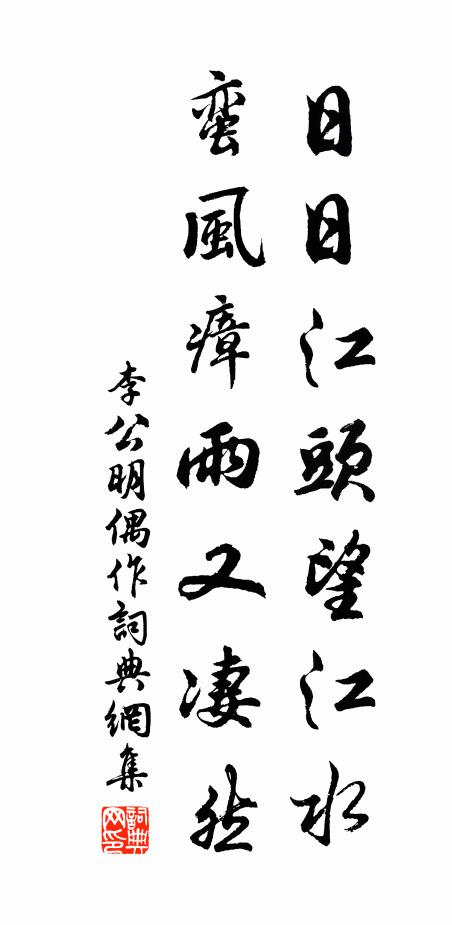 日日江頭望江水
蛮風瘴雨又凄然
李公明偶作詞典網集
詞典
网印